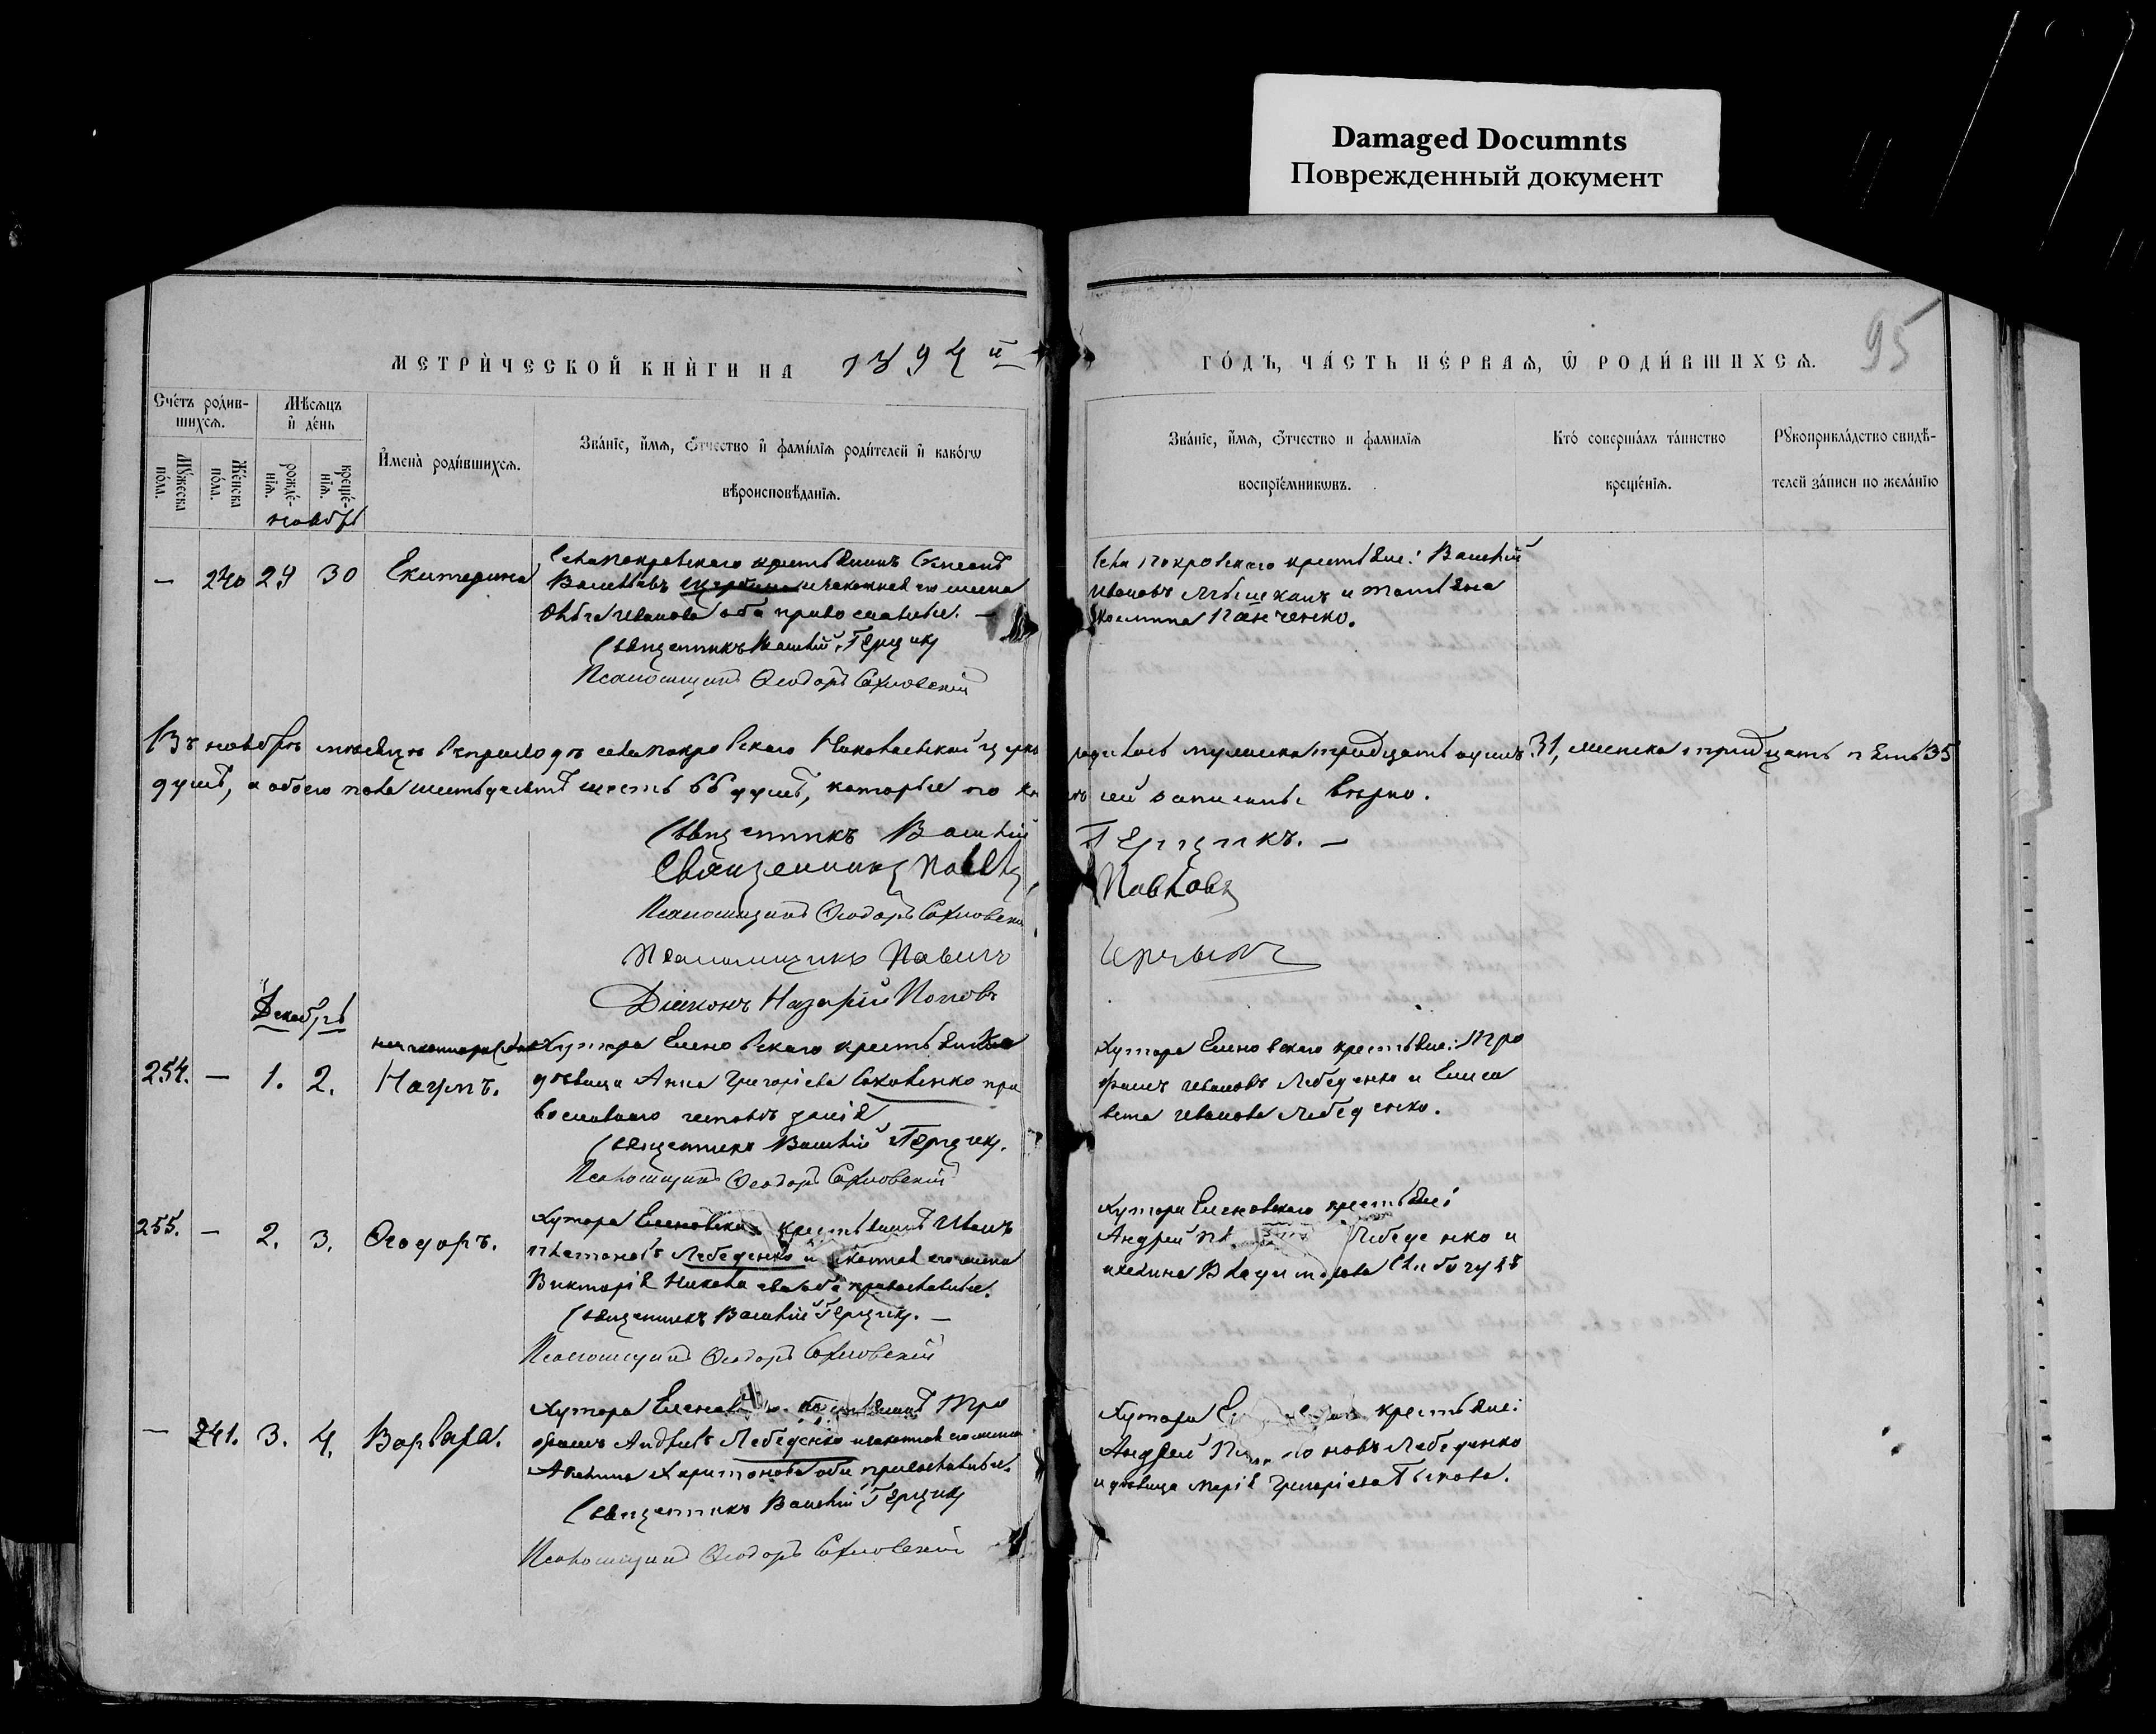 Damaged Documnts
Поврежденный документ
95
МЕТРИЧЕСКОЙ КНИГИ НА 1894 й
ГОДЪ, ЧАСТЬ ПЕРВАЯ, Ѡ РОДИВШИХСЯ.
Счетъ родив-
шихся.
Мужеска
пола.
Женска
пола.
Мѣсяцъ
и день
рожде-
нія.
креще-
нія.
Имена родившихся.
Званіе, имя, отчество и фамилія родителей и какогѡ
вѣроисповѣданія.
Званіе, имя, отчество и фамилія
воспріемникѡвъ.
Кто совершалъ таинство
крещенія.
Рукоприкладство свидѣ-
телей записи по желанію
ноябрь
— 240 29 30 Екатерина
Села Покровскаго крестьянинъ
Васильевъ и законная его жена
Ольга Иванова оба православные. —
Священникъ Василій Герцикъ
Псаломщикъ Ѳеодоръ
Села Покровскаго крестьяне: Василій
Ивановъ и
Панченко.
Въ ноябрѣ мѣсяцѣ въ приходѣ села Покровскаго Николаевской церкви родилось мужеска тридцать одинъ 31, женска тридцать пять 35
душъ, а обоего пола шестьдесятъ шесть 66 душъ, которые по сей записаны вѣрно.
Священникъ Василій Герцикъ. —
Священникъ Павелъ Павловъ
Псаломщикъ Ѳеодоръ
Псаломщикъ Павелъ
Діаконъ Назарій Поповъ
Декабрь
254. — 1. 2. Наумъ.
Хутора Еленовскаго крестьянская
дѣвица Анна Григоріева Саковенко пра
вославнаго исповѣданія
Священникъ Василій Герцикъ.
Псаломщикъ Ѳеодоръ
Хутора Еленовскаго крестьяне: Тро
фимъ Ивановъ Лебеденко и Елиса
вета Иванова Лебеденко.
255. — 2. 3. Ѳеодоръ.
Хутора Еленовскаго крестьянинъ Иванъ
Платоновъ Лебеденко и законная его жена
Викторія Николаева оба православные.
Священникъ Василій Герцикъ. —
Псаломщикъ Ѳеодоръ
Хутора Еленовскаго крестьяне:
Андрей Лебеденко и
— 241. 3. 4. Варвара.
Хутора крестьянинъ Тро
фимъ Андреевъ Лебеденко и законная его жена
Харитонова оба православные.
Священникъ Василій Герцикъ
Псаломщикъ Ѳеодоръ
Хутора крестьяне:
Андрей Лебеденко
и дѣвица Марія Григоріева